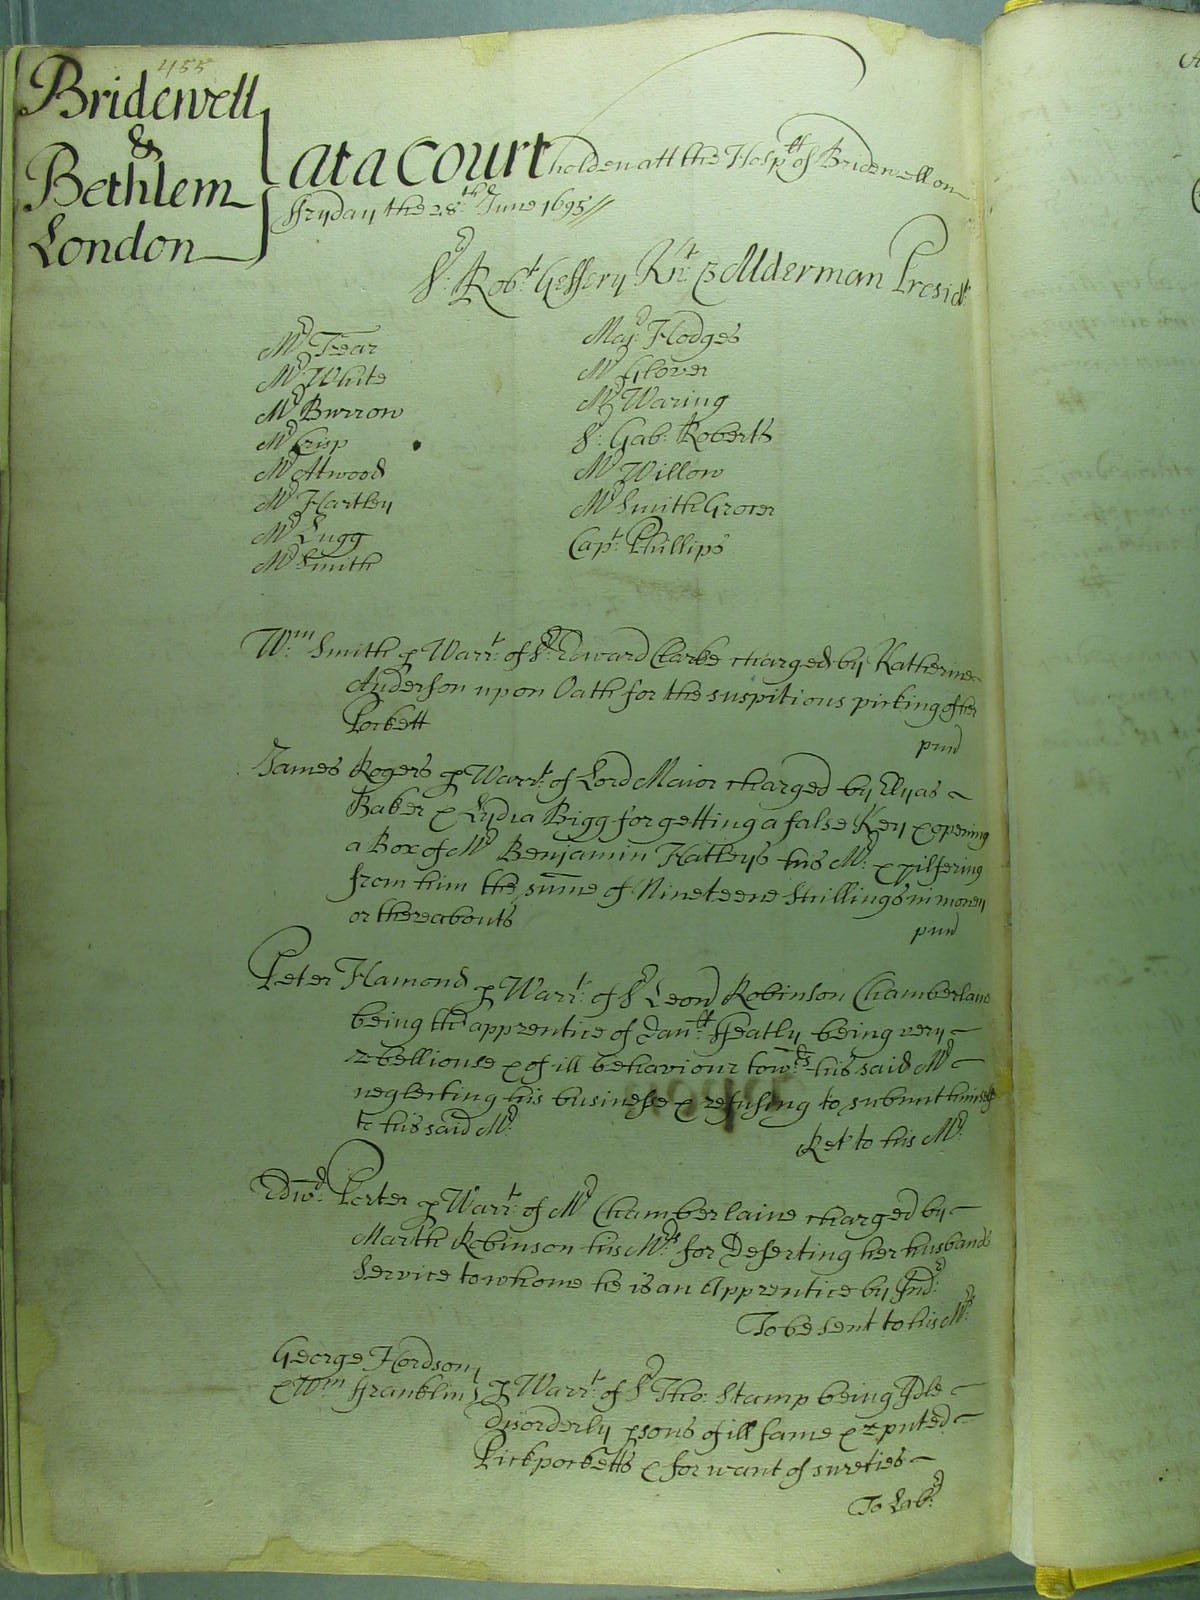 455
Bridewell
&
Bethlem
London
att a Court holden att the Hosp:ll of Bridewell on
ffryday the 28:th June 1695//
Sr: Robt: Geffery Knt: & Alderman Presidt
Mr Tear
Mr White
Mr Burrow
Mr Crisp
Mr Atwood
Mr Hartley
Mr Lugg
Mr Smith
Maj: Hodges
Mr Glover
Mr Waring
Sr: Gab: Roberts
Mr Willow
Mr Smith Grocer
Capt: Phillips
Wm: Smith p Warrt: of Sr: Edward Clarke charged by Katherine
Anderson upon Oath for the suspitious picking of her
Pockett
pun'd
James Rogers p Warrt: of Lord Maior charged by Elyas
Baker & Lydia Bigg for getting a false Key & opening
a Box of Mr Benjamin Hatleys his Mr: & pilfering
from him the sume of Nineteene Shillings in money
or thereabouts
pun'd
Peter Hamond p Warrt: of Sr Leond Robinson Chamberlaine
being the apprentice of Danll: ffeatly being very
rebelliouse & of ill behaviour towds: his said Mr
neglecting his businesse & refusing to submitt himself
to his said Mr:
Ret to his Mr:
Edwd: Porter p Warrt: of Mr Chamberlaine charged by
Marth Robinson his Mrs: for Deserting her husbands
Service to whome he is an Apprentice by Indr:
To be sent to his Mr:
George Hordsom
& Wm ffranklin } p Warrt: of Sr Tho: Stamp being Idle
disorderly psons of ill fame & reputed
Pickpocketts & for want of sureties
To Labr: